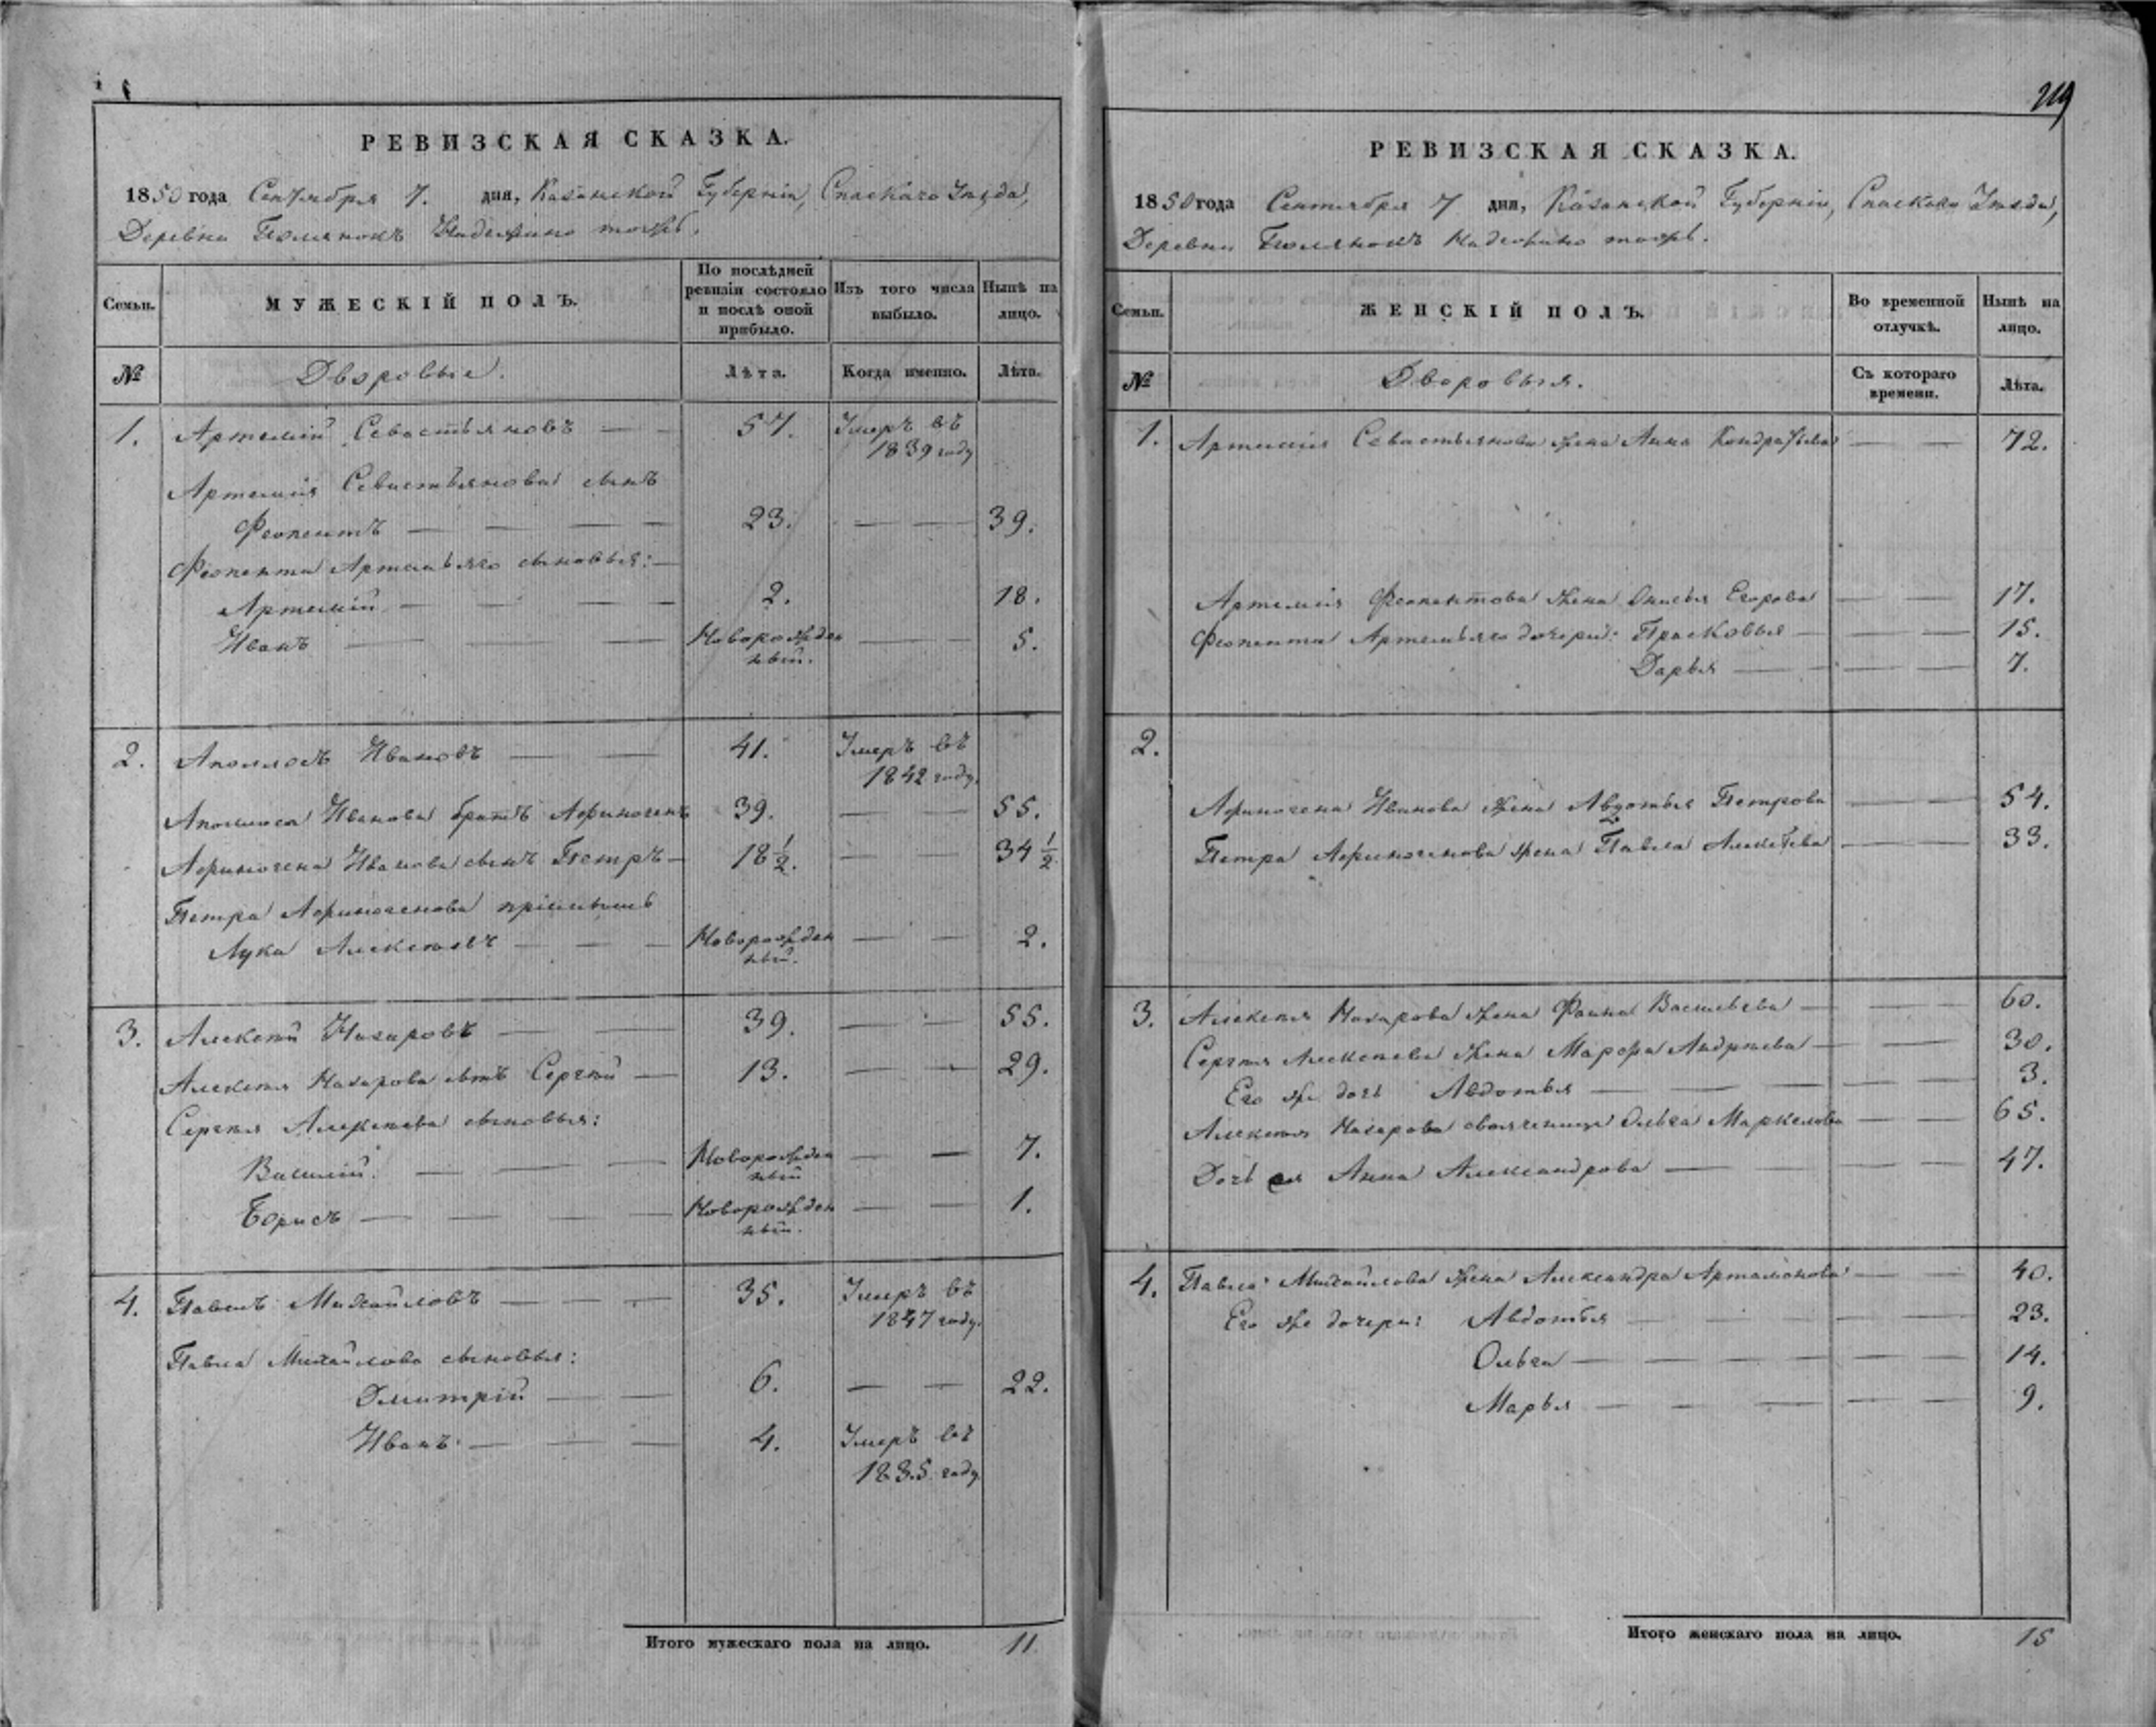 РЕВИЗСКАЯ СКАЗКА.
1850 года Сентября 7. дня, Казанской Губерніи, Спаскаго Уѣзда,
Деревни Полянокъ Надежино тожъ.
Семьи.
МУЖЕСКІЙ ПОЛЪ.
По послѣдней ревизіи состояло и послѣ оной прибыло.
Изъ того числа выбыло.
Нынѣ на лицо.
№
Дворовые.
Лѣта.
Когда именно.
Лѣта.
1. Артемій Севастьяновъ 57. Умеръ въ
1839 году
Артемія Севастьянова сынъ
Феопентъ 23. 39.
Феопента Артемьева сыновья:
Артемій 2. 18.
Иванъ Новорожден 5.
ный.
2. Аполлосъ Ивановъ 41. Умеръ въ
1842 году.
Аполлоса Иванова братъ Афиногенъ 39. 55.
Афиногена Иванова сынъ Петръ 18 1/2. 34 1/2
Петра Афиногенова пріимышъ
Лука Алексѣевъ Новорожден 2.
ный.
3. Алексѣй Назаровъ 39. 55.
Алексѣя Назарова сынъ Сергѣй 13. 29.
Сергѣя Алексѣева сыновья:
Василій. Новорожден 7.
ный
Борисъ Новорожден 1.
ный.
4. Павелъ Михайловъ 35. Умеръ въ
1847 году.
Павла Михайлова сыновья:
Дмитрій 6. 22.
Иванъ 4. Умеръ въ
1835 году.
Итого мужескаго пола на лицо. 11
219
РЕВИЗСКАЯ СКАЗКА.
1850 года Сентября 7 дня, Казанской Губерніи, Спаскаго Уѣзда,
Деревни Полянокъ Надежино тожъ.
Семьи.
ЖЕНСКІЙ ПОЛЪ.
Во временной отлучкѣ.
Нынѣ на лицо.
№
Дворовыя.
Съ котораго времени.
Лѣта.
1. Артемія Севастьянова жена Анна Кондратьева 72.
Артемія Феопентова жена Егорова 17.
Феопента Артемьева дочери: Прасковья 15.
Дарья 7.
2.
Афиногена Иванова жена Авдотья Петрова 54.
Петра Афиногенова жена Павла Алексѣева 33.
3. Алексѣя Назарова жена Фаина Васильева 60.
Сергѣя Алексѣева жена Марфа Андреева 30.
Его же дочь Авдотья 3.
Алексѣя Назарова свояченица Ольга Маркелова 65.
Дочь ея Анна Александрова 47.
4. Павла Михайлова жена Александра Артамонова 40.
Его же дочери: Авдотья 23.
Ольга 14.
Марья 9.
Итого женскаго пола на лицо. 15